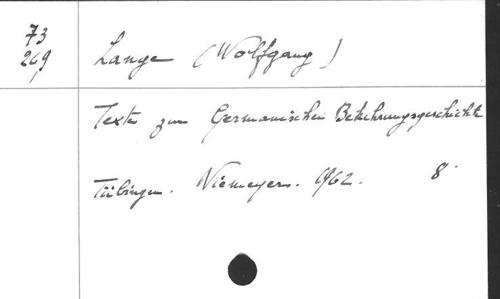 73
269
Lange (Wolfgang)
Texte zur Germanischen Bekehrungsgeschichte
Tübingen. Niemeyer. 1962. 8°